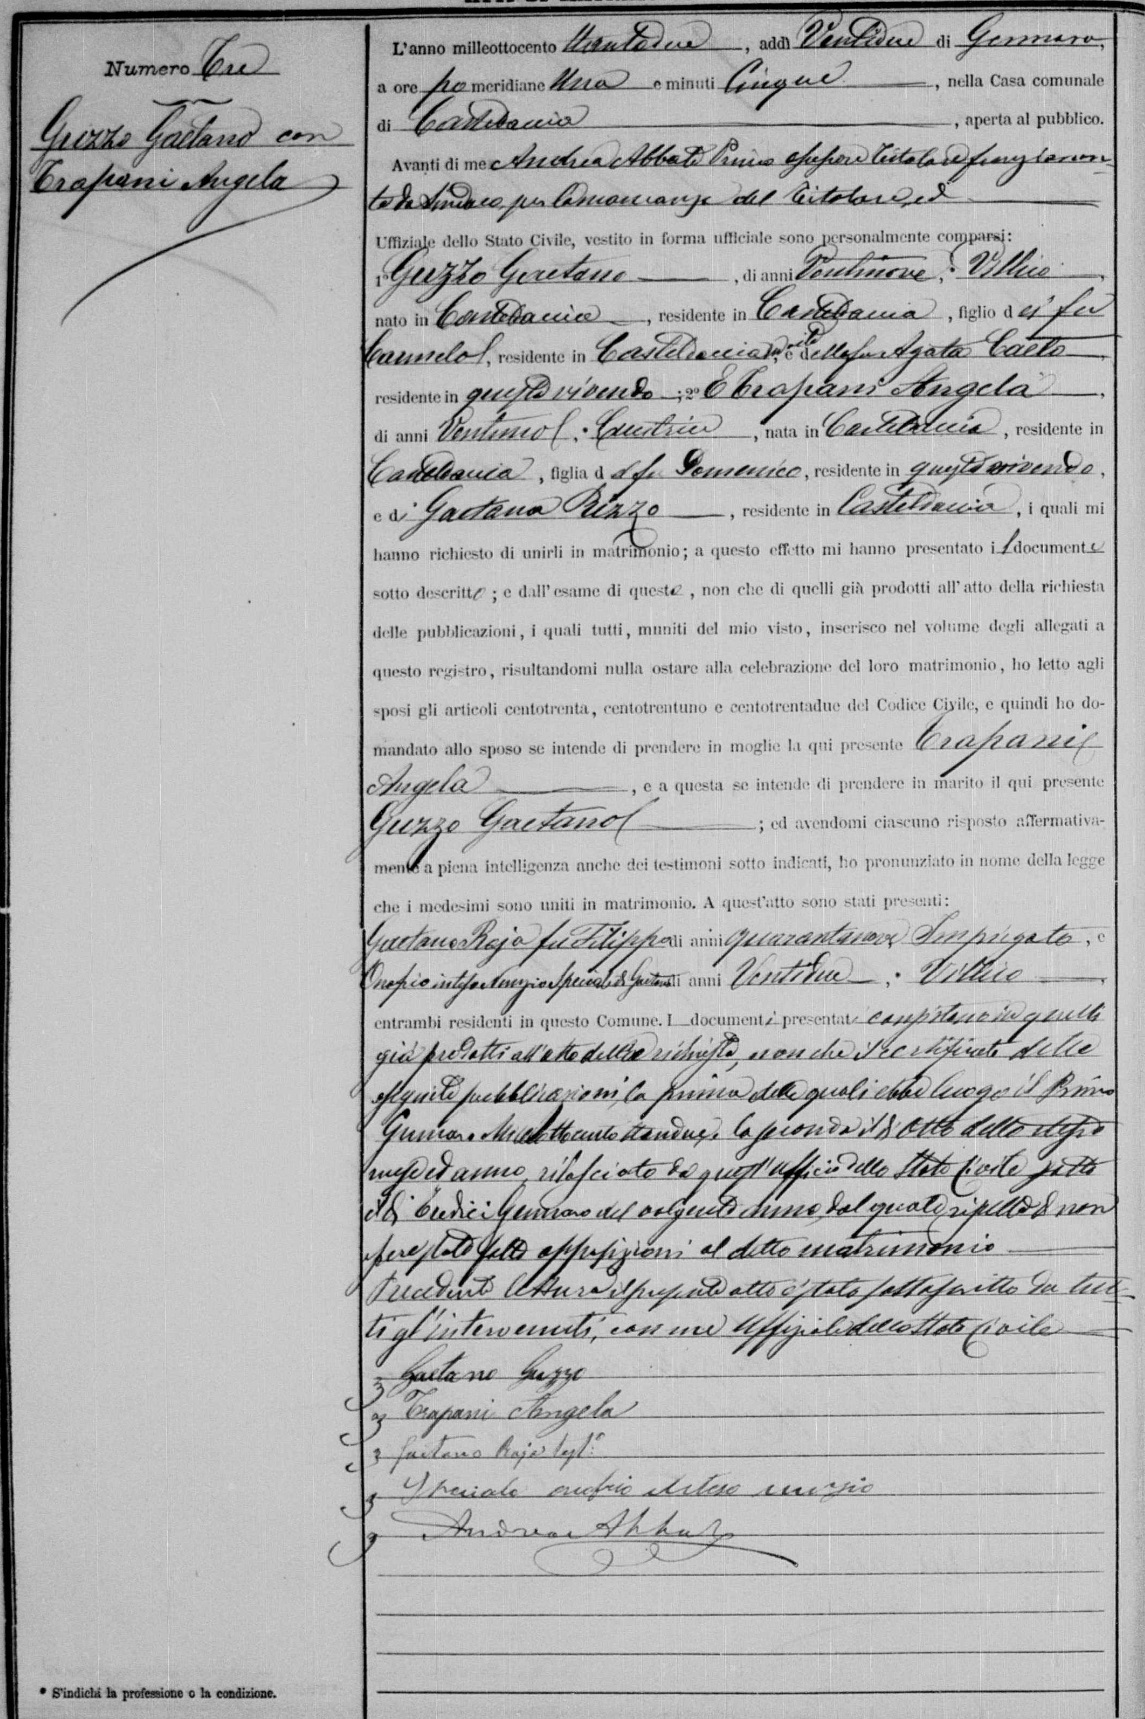 Numero Tre
Guzzo Gaetano con
Trapani Angela
L'anno milleottocento Ottantadue, addì Ventidue di Gennaro,
a ore pomeridiane Una e minuti Cinque, nella Casa comunale
di Casteldaccia, aperta al pubblico.
Avanti di me Andrea Abbate Primo assessore titolare funzionan-
te da Sindaco per la mancanza del titolare, ed
Uffiziale dello Stato Civile, vestito in forma ufficiale sono personalmente comparsi:
1º Guzzo Gaetano, di anni Ventinove, * Villico,
nato in Casteldaccia, residente in Casteldaccia, figlio d el fu
Carmelo, residente in Casteldaccia in vita, e della fu Agata Caeto
residente in questa vivendo; 2º E Trapani Angela,
di anni Ventuno, * Custrice, nata in Casteldaccia, residente in
Casteldaccia, figlia d el fu Domenico, residente in questa vivendo,
e di Gaetana Rizzo, residente in Casteldaccia, i quali mi
hanno richiesto di unirli in matrimonio; a questo effetto mi hanno presentato i documenti
sotto descritti; e dall'esame di questi, non che di quelli già prodotti all'atto della richiesta
delle pubblicazioni, i quali tutti, muniti del mio visto, inserisco nel volume degli allegati a
questo registro, risultandomi nulla ostare alla celebrazione del loro matrimonio, ho letto agli
sposi gli articoli centotrenta, centotrentuno e centotrentadue del Codice Civile, e quindi ho do-
mandato allo sposo se intende di prendere in moglie la qui presente Trapani
Angela, e a questa se intende di prendere in marito il qui presente
Guzzo Gaetano; ed avendomi ciascuno risposto affermativa-
mente a piena intelligenza anche dei testimoni sotto indicati, ho pronunziato in nome della legge
che i medesimi sono uniti in matrimonio. A quest'atto sono stati presenti:
Gaetano Raja fu Filippo di anni quarantanove Impiegato, e
Onofrio inteso Nunzio Speciale di Gaetano di anni Ventidue, * Villico
entrambi residenti in questo Comune. I documenti presentati consistono in quelli
già prodotti all'atto della richiesta, non che il certificato delle
eseguite pubblicazioni, la prima delle quali ebbe luogo il Primo
Gennaro Milleottocento ottandue, la seconda il dì Otto dello stesso
mese ed anno, rilasciato da quest'ufficio dello Stato Civile sotto
il dì Tredici Gennaro del volgente anno, dal quale risulta di non
essere state fatte opposizioni al detto matrimonio
Precedente lettura il presente atto è stato sottoscritto da tut-
ti gl'intervenuti, con me Uffiziale dello Stato Civile
Gaetano Guzzo
Trapani Angela
Gaetano Raja test.
Speciale onofrio inteso nunzio
Andrea Abbate
* S'indichi la professione o la condizione.